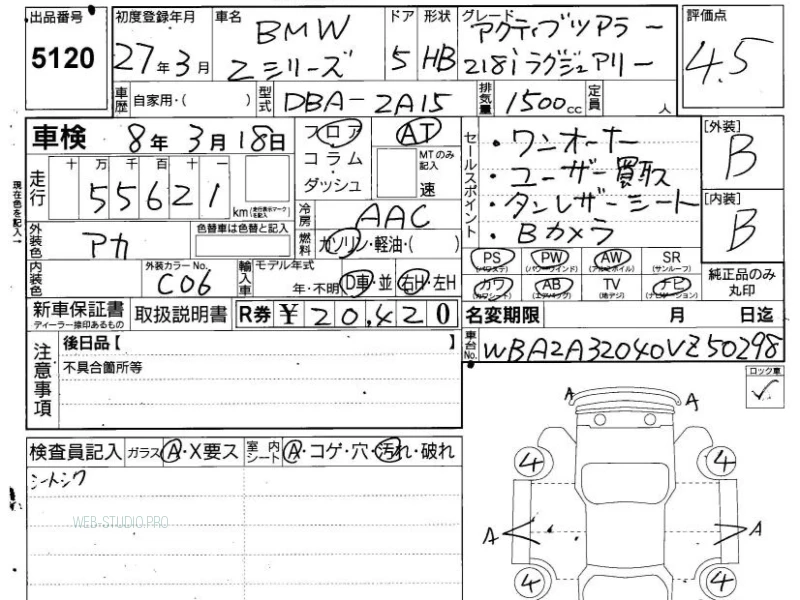 出品番号 初度登録年月 車名 ドア 形状 グレード 評価点
5120 27年3月 BMW 2シリーズ 5 HB アクティブツアラー 218iラグジュアリー 4.5
車歴 自家用・( ) 型式 DBA-2A15 排気量 1500cc 定員 人
車検 8年3月18日 フロア AT セールスポイント ・ワンオーナー [外装]
コラム MTのみ記入 ・ユーザー買取 B
走行 十 万 千 百 十 一 ダッシュ 速 ・タンレザーシート [内装]
55621 km(走行表示マークを記入) 冷房 AAC ・Bカメラ B
現在色を記入→
外装色 アカ 色替車は色替と記入 燃料 ガソリン・軽油・( )
PS (パワステ) PW (パワーウインド) AW (アルミホイル) SR (サンルーフ) 純正品のみ丸印
内装色 外装カラーNo. C06 輸入車 モデル年式 年・不明 D車・並 右H・左H
カワ (カワシート) AB (エアバッグ) TV (地デジ) ナビ (ナビゲーション)
新車保証書 ディーラー捺印あるもの 取扱説明書 R券 ¥20,420 名変期限 月 日迄
注意事項 後日品【 】 車台No. WBA2A32040VZ50298
不具合箇所等 ロック車
A A
検査員記入 ガラス A・X要ス 室内シート A・コゲ・穴・汚れ・破れ
シートシワ 4 4
WEB-STUDIO.PRO
A A
4 4